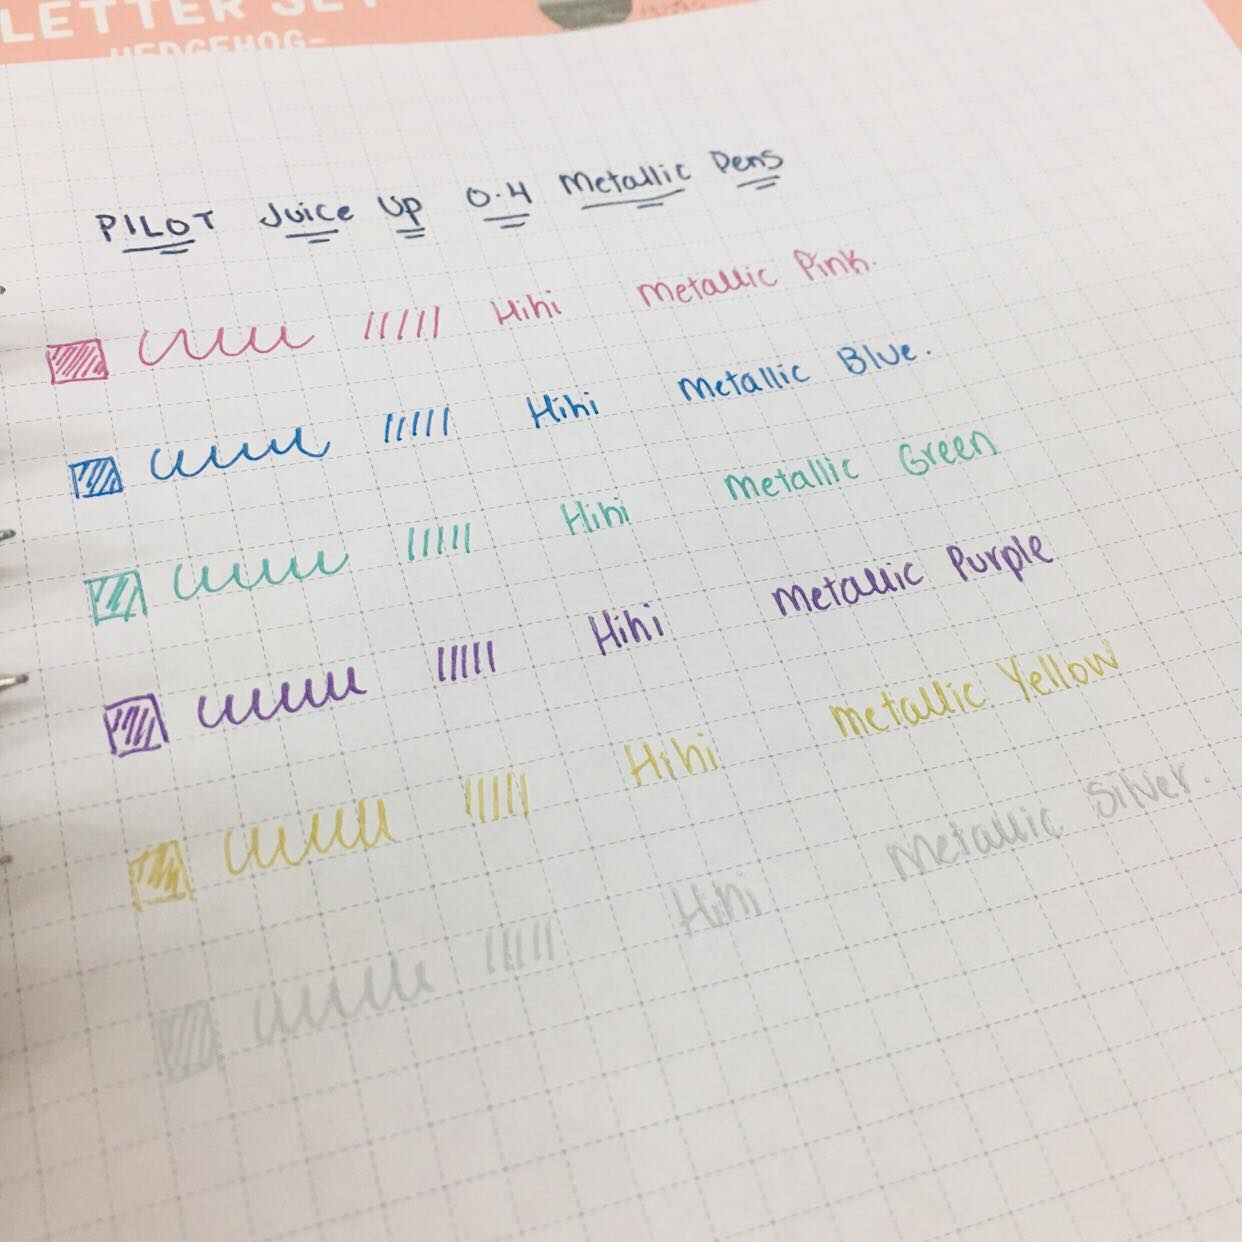 LETTER SET
HEDGEHOG-
PILOT Juice Up 0.4 Metallic Pens
Hihi Metallic Pink.
Hihi Metallic Blue.
Hihi Metallic Green
Hihi Metallic Purple
Hihi Metallic Yellow
Hihi Metallic Silver.